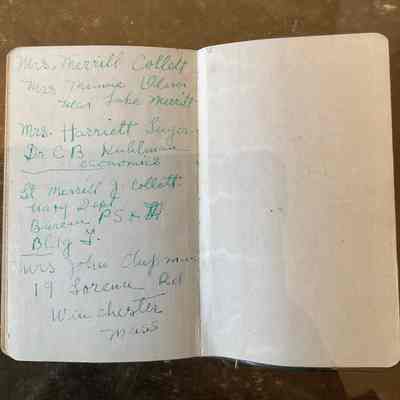 Mrs. Merrill Collett
Mrs Minnie
near Lake Merritt
Mrs. Harriett
Dr C B Kuhlman
economics
Lt Merrill J. Collett
Navy Dept
Bureau PS &
Bldg
Mrs John Chapman
19 Lorena Rd
Winchester
Mass